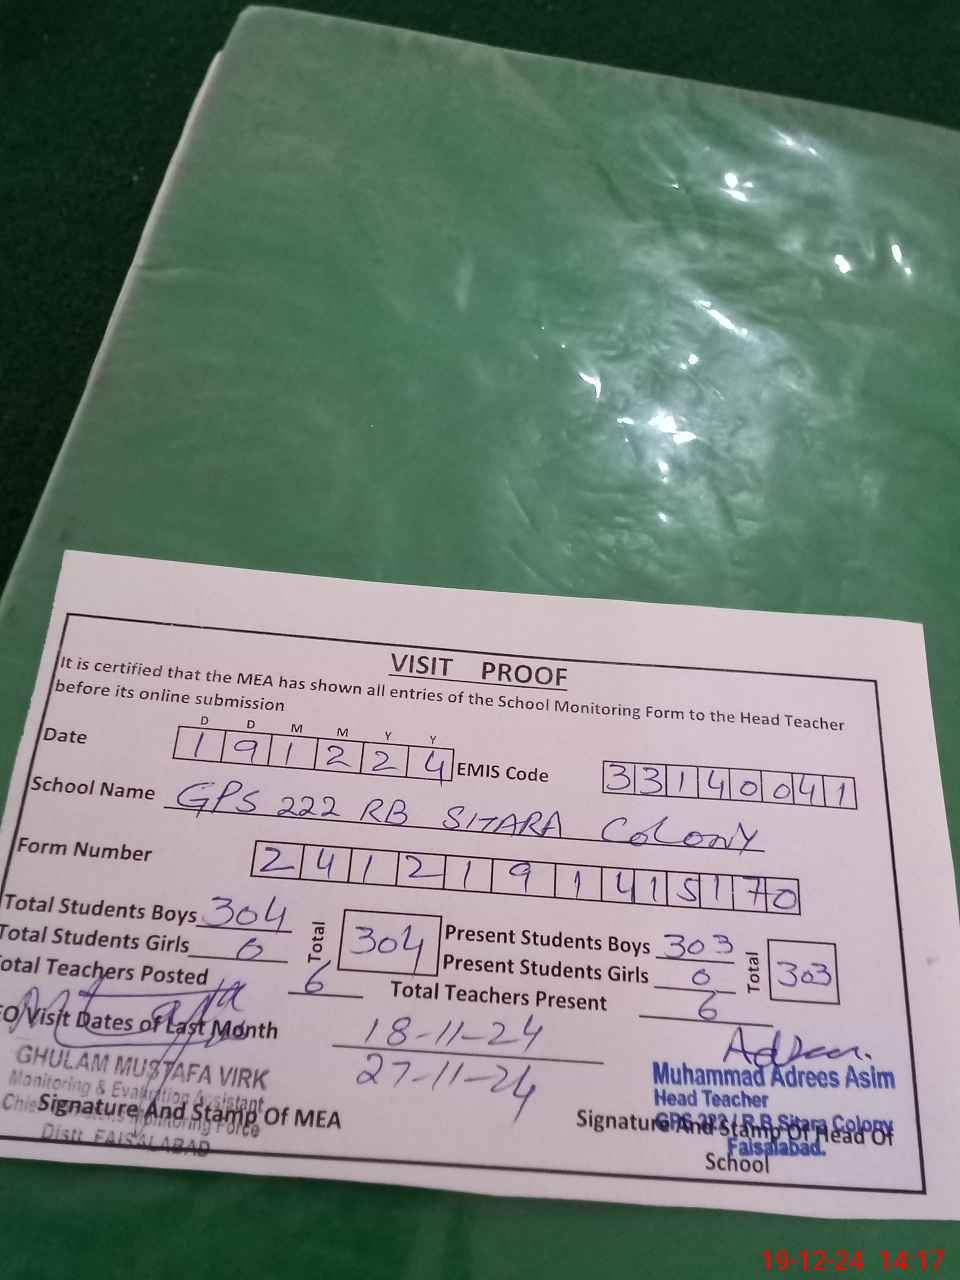 VISIT PROOF
It is certified that the MEA has shown all entries of the School Monitoring Form to the Head Teacher
before its online submission
D D M M Y Y
Date 1 9 1 2 2 4 EMIS Code 3 3 1 4 0 0 4 1
School Name GPS 222 RB SITARA COLONY
Form Number 2 4 1 2 1 9 1 4 1 5 1 7 0
Total Students Boys 304 Total 304 Present Students Boys 303 Total 303
Total Students Girls 0 Present Students Girls 0
otal Teachers Posted 6 Total Teachers Present 6
EO Visit Dates of Last Month 18-11-24
27-11-24
GHULAM MUSTAFA VIRK
Monitoring & Evaluation Assistant
Monitoring Force
Distt. FAISALABAD
Signature And Stamp Of MEA
Muhammad Adrees Asim
Head Teacher
GPS 222 / R.B Sitara Colony
Faisalabad.
Signature And Stamp Of Head Of
School
19-12-24 14:17